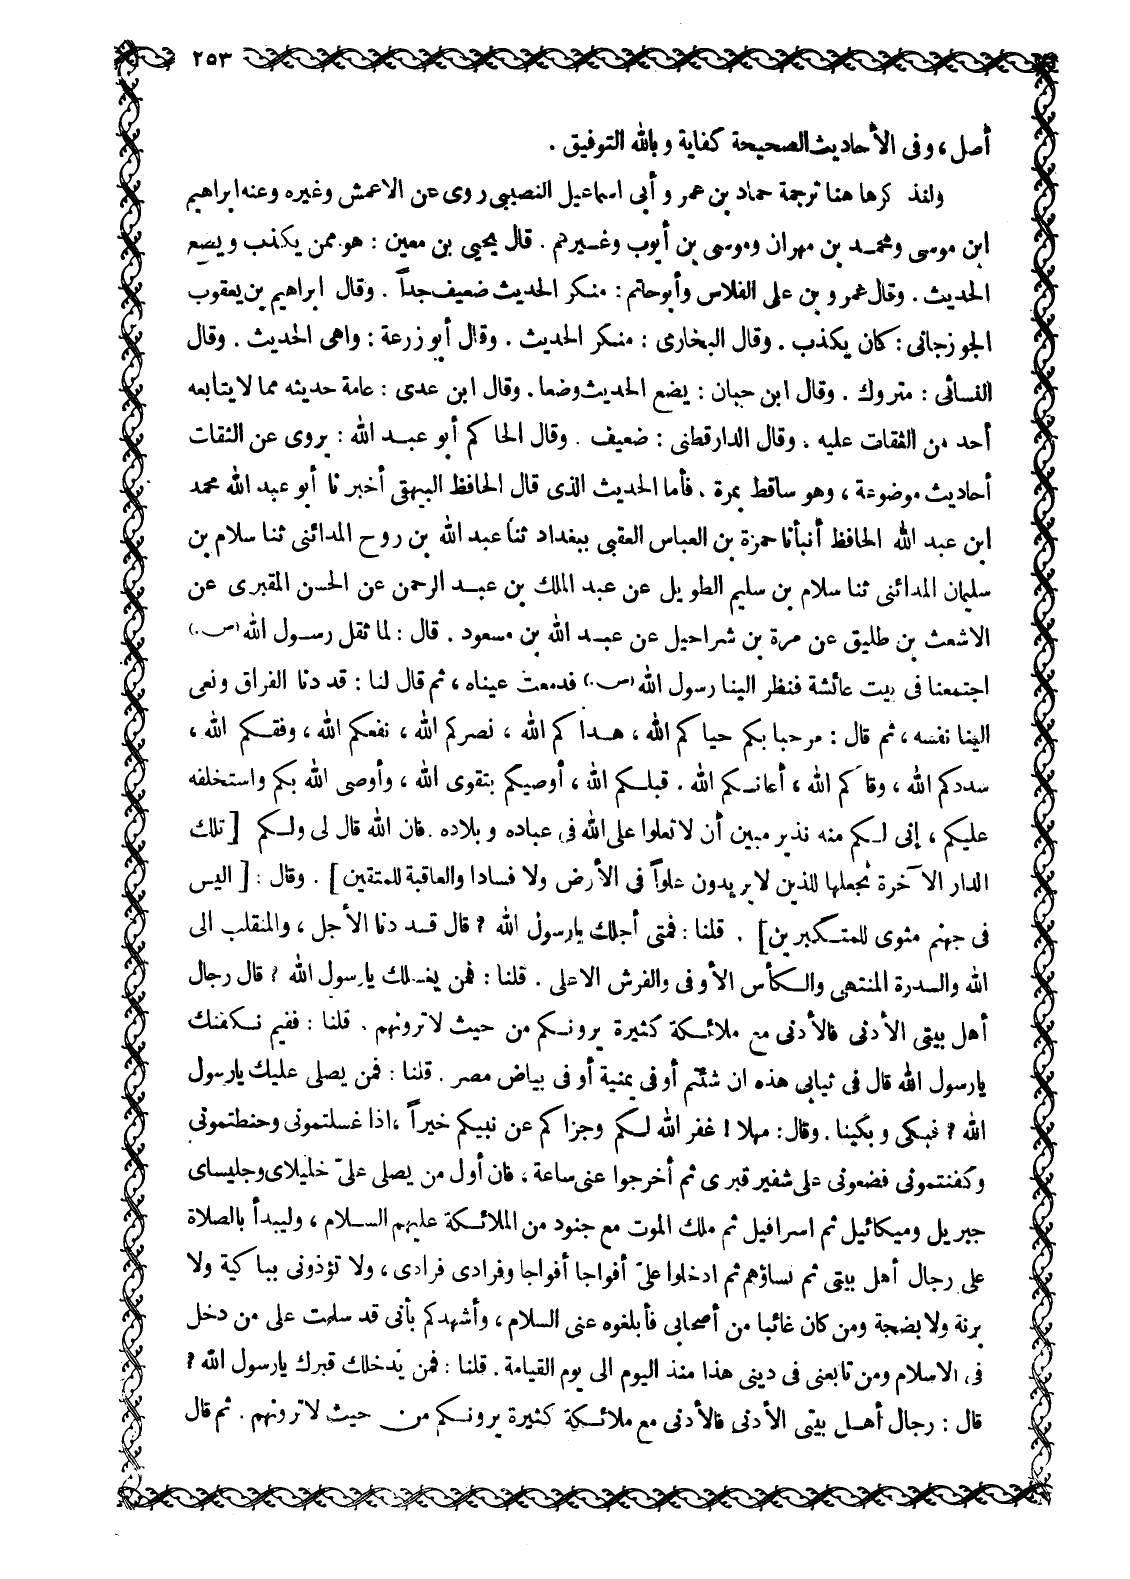 ٢٥٣
أصل ، وفى الأحاديث الصحيحة كفاية وبالله التوفيق .
ولنذ كرها هنا ترجمة حماد بن عمر و أبى اسماعيل النصيبى روى عن الاعمش وغيره وعنه ابراهيم
ابن موسى ومحمد بن مهران وموسى بن أيوب وغيرهم . قال يحيى بن معين : هو ممن يكذب ويضع
الحديث . وقال عمر و بن على الفلاس وأبو حاتم : منكر الحديث ضعيف جداً . وقال ابراهيم بن يعقوب
الجو زجانى : كان يكذب . وقال البخارى : منكر الحديث . وقال أبو زرعة : واهى الحديث . وقال
النسائى : متروك . وقال ابن حبان : يضع الحديث وضعا . وقال ابن عدى : عامة حديثه مما لا يتابعه
أحد من الثقات عليه . وقال الدارقطنى : ضعيف . وقال الحا كم أبو عبد الله : يروى عن الثقات
أحاديث موضوعة ، وهو ساقط بمرة . فأما الحديث الذى قال الحافظ البيهقى أخبر نا أبو عبد الله محمد
ابن عبد الله الحافظ أنبأنا حمزة بن العباس العقبى ببغداد ثنا عبد الله بن روح المدائنى ثنا سلام بن
سليمان المدائنى ثنا سلام بن سليم الطويل عن عبد الملك بن عبد الرحمن عن الحسن المقبرى عن
الاشعث بن طليق عن مرة بن شراحيل عن عبد الله بن مسعود . قال : لما ثقل رسول الله (ص.)
اجتمعنا فى بيت عائشة فنظر الينا رسول الله (ص.) فدمعت عيناه ، ثم قال لنا : قد دنا الفراق ونعى
الينا نفسه ، ثم قال : مرحبا بكم حيا كم الله ، هدا كم الله ، نصركم الله ، نفعكم الله ، وفقكم الله ،
سددكم الله ، وقا كم الله ، أعانكم الله . قبلكم الله ، أوصيكم بتقوى الله ، وأوصى الله بكم واستخلفه
عليكم ، إنى لكم منه نذير مبين أن لا تعلوا على الله فى عباده و بلاده . فان الله قال لى ولكم [ تلك
الدار الآخرة نجعلها للذين لا يريدون علواً فى الأرض ولا فسادا والعاقبة للمتقين ] . وقال : [ اليس
فى جهنم مثوى للمتكبرين ] . قلنا : فمتى أجلك يارسول الله ؟ قال قد دنا الأجل ، والمنقلب الى
الله والسدرة المنتهى والكأس الأوفى والفرش الاعلى . قلنا : فمن يغسلك يارسول الله ؟ قال رجال
أهل بيتى الأدنى فالأدنى مع ملائكة كثيرة يرونكم من حيث لا ترونهم . قلنا : ففيم نكفنك
يارسول الله قال فى ثيابى هذه ان شئتم أو فى يمنية أو فى بياض مصر . قلنا : فمن يصلى عليك يارسول
الله ؟ فبكى و بكينا . وقال : مهلا ! غفر الله لكم وجزا كم عن نبيكم خيراً ، اذا غسلتمونى وحنطتمونى
وكفنتمونى فضعونى على شفير قبرى ثم أخرجوا عنى ساعة ، فان أول من يصلى علىّ خليلاى وجليساى
جبريل وميكائيل ثم اسرافيل ثم ملك الموت مع جنود من الملائكة عليهم السلام ، وليبدأ بالصلاة
على رجال أهل بيتى ثم نساؤهم ثم ادخلوا علىّ أفواجا أفواجا وفرادى فرادى ، ولا تؤذونى ببا كية ولا
برنة ولا بضجة ومن كان غائبا من أصحابى فأبلغوه عنى السلام ، وأشهدكم بأنى قد سلمت على من دخل
فى الاسلام ومن تابعنى فى دينى هذا منذ اليوم الى يوم القيامة . قلنا : فمن يدخلك قبرك يارسول الله ؟
قال : رجال أهل بيتى الأدنى فالأدنى مع ملائكة كثيرة يرونكم من حيث لا ترونهم . ثم قال